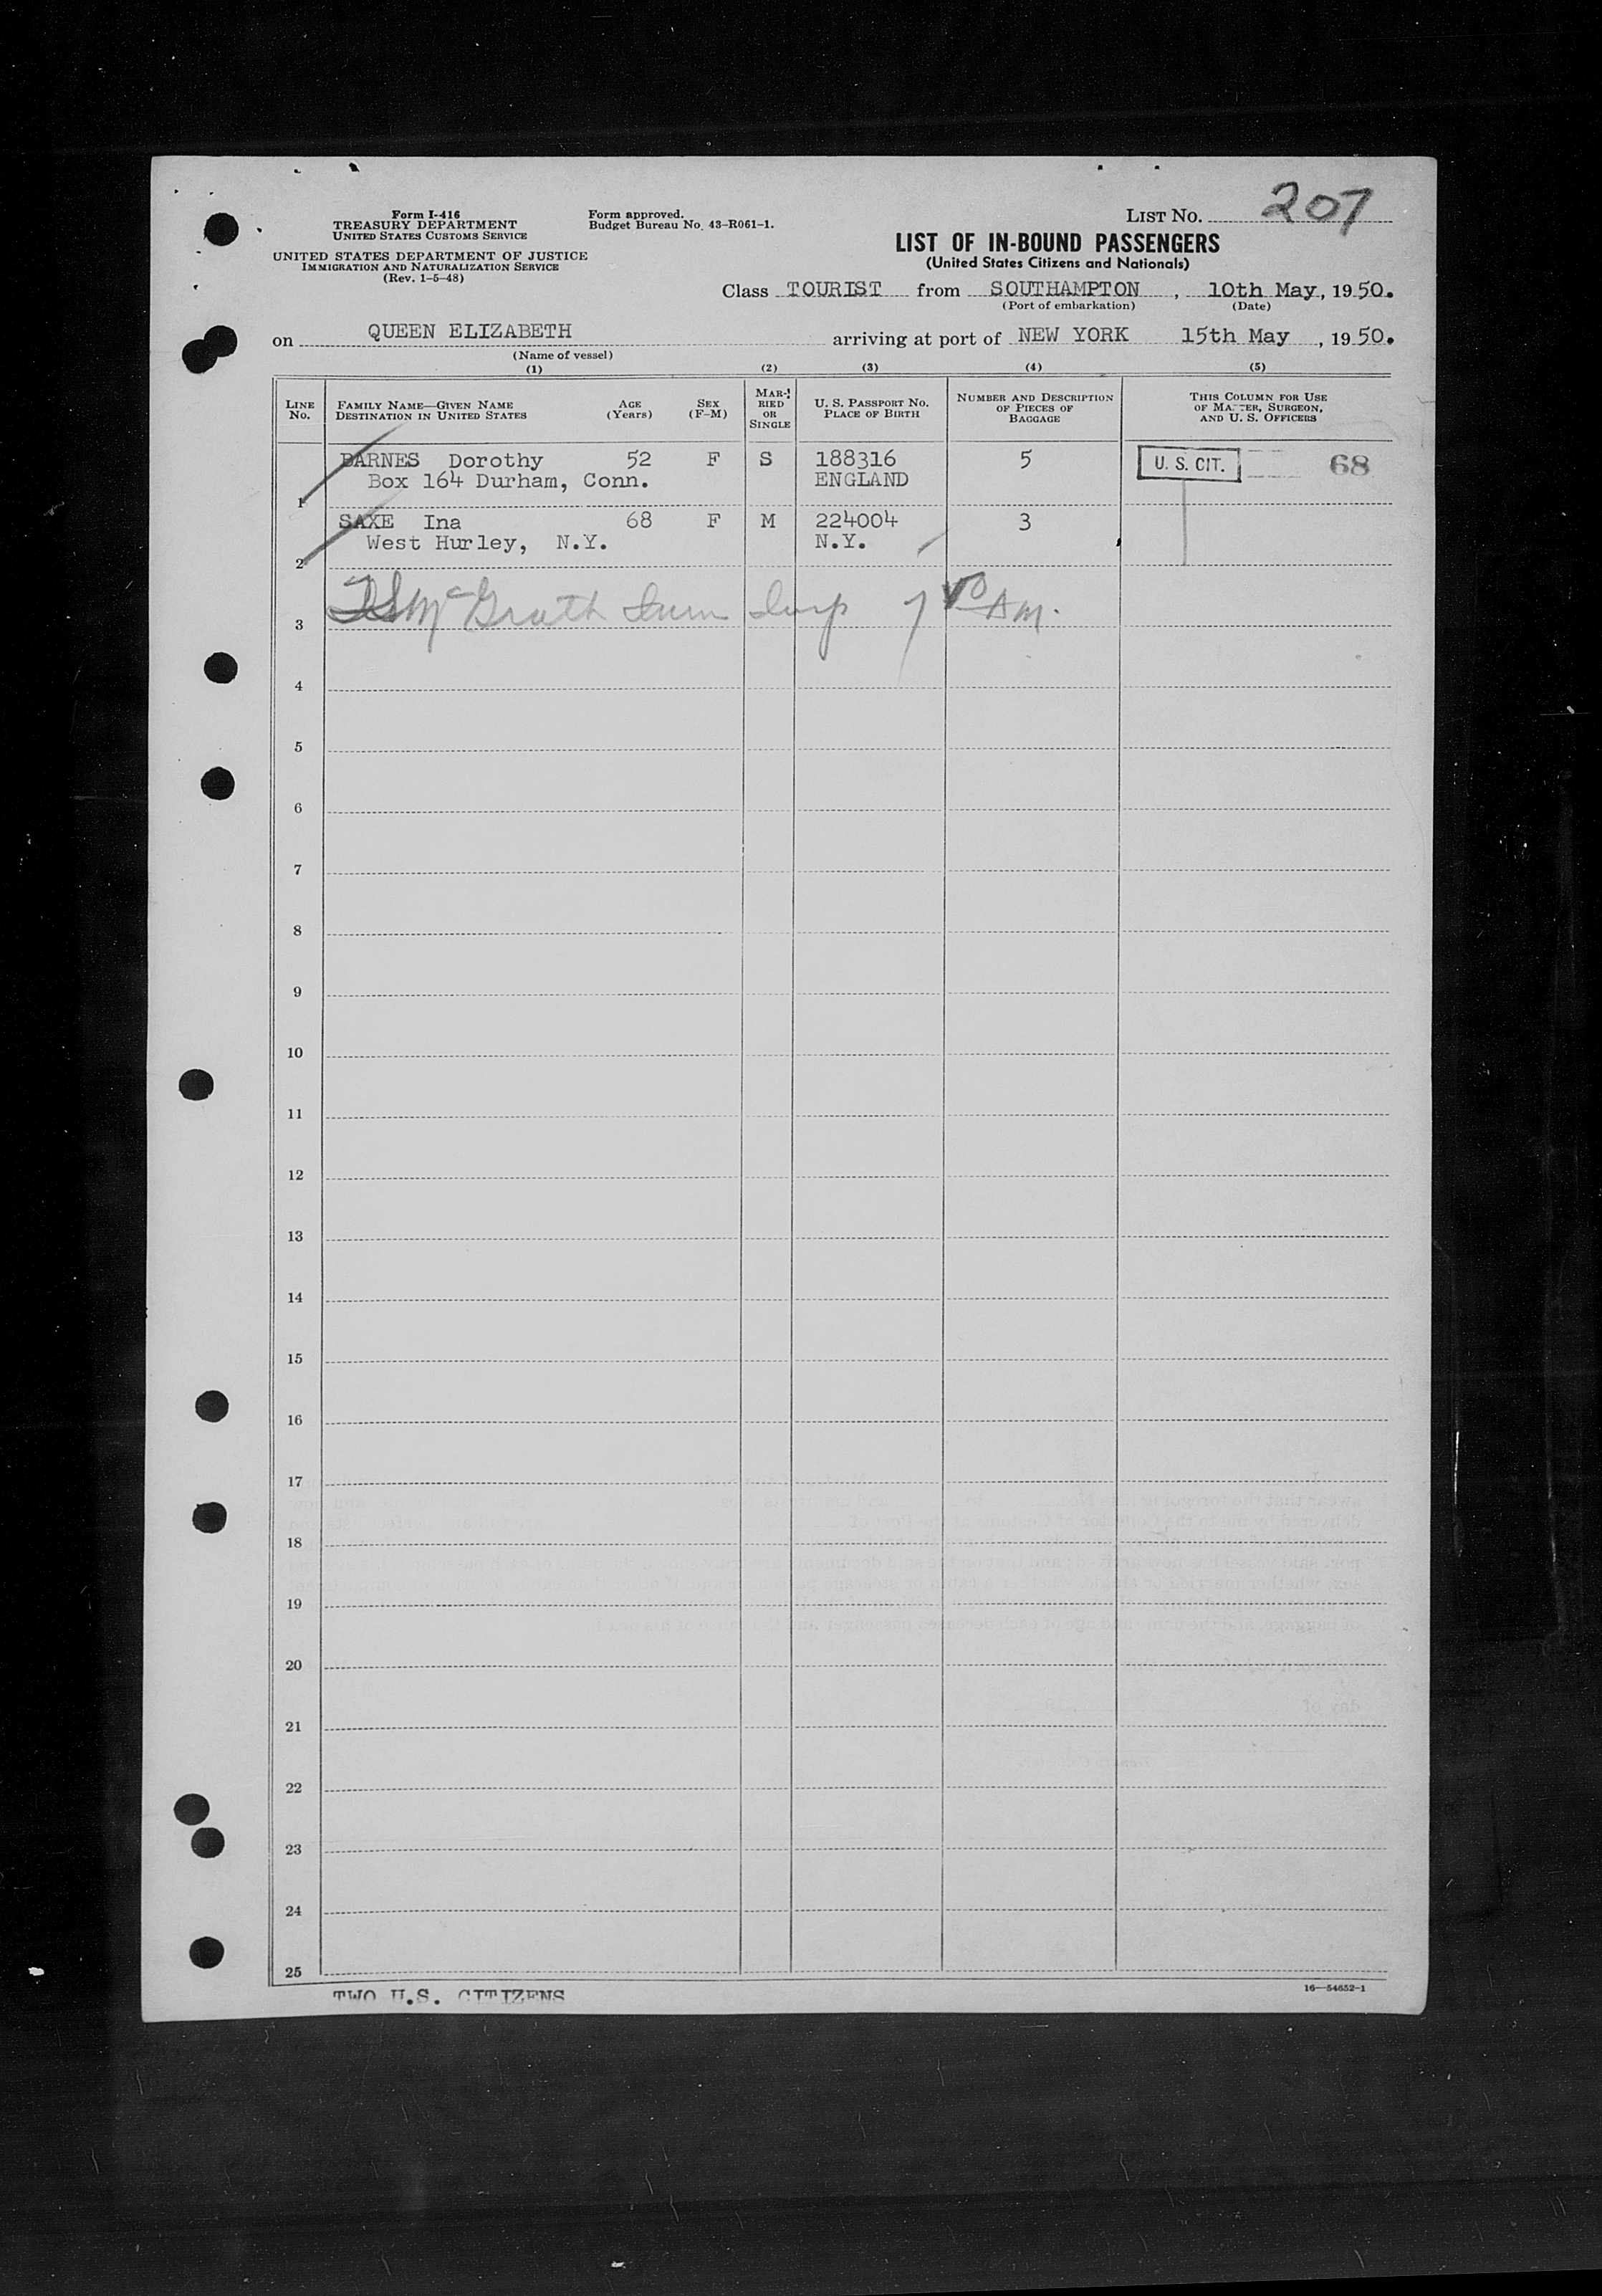 Form I-416
TREASURY DEPARTMENT
UNITED STATES CUSTOMS SERVICE
UNITED STATES DEPARTMENT OF JUSTICE
IMMIGRATION AND NATURALIZATION SERVICE
(Rev. 1-5-48)
Form approved.
Budget Bureau No. 43-R061-1.
LIST NO. 207
LIST OF IN-BOUND PASSENGERS
(United States Citizens and Nationals)
Class TOURIST from SOUTHAMPTON, 10th May, 1950.
(Port of embarkation) (Date)
on QUEEN ELIZABETH arriving at port of NEW YORK 15th May, 1950.
(Name of vessel)
(1) (2) (3) (4) (5)
LINE NO. FAMILY NAME—GIVEN NAME DESTINATION IN UNITED STATES AGE (Years) SEX (F-M) MARRIED OR SINGLE U. S. PASSPORT NO. PLACE OF BIRTH NUMBER AND DESCRIPTION OF PIECES OF BAGGAGE THIS COLUMN FOR USE OF MASTER, SURGEON, AND U. S. OFFICERS
BARNES Dorothy 52 F S 188316 5 U. S. CIT. 68
Box 164 Durham, Conn. ENGLAND
1
SAXE Ina 68 F M 224004 3
West Hurley, N.Y. N.Y.
2
McGrath Imm Insp 7 AM.
3
4
5
6
7
8
9
10
11
12
13
14
15
16
17
18
19
20
21
22
23
24
25
TWO U.S. CITIZENS
16—54652-1